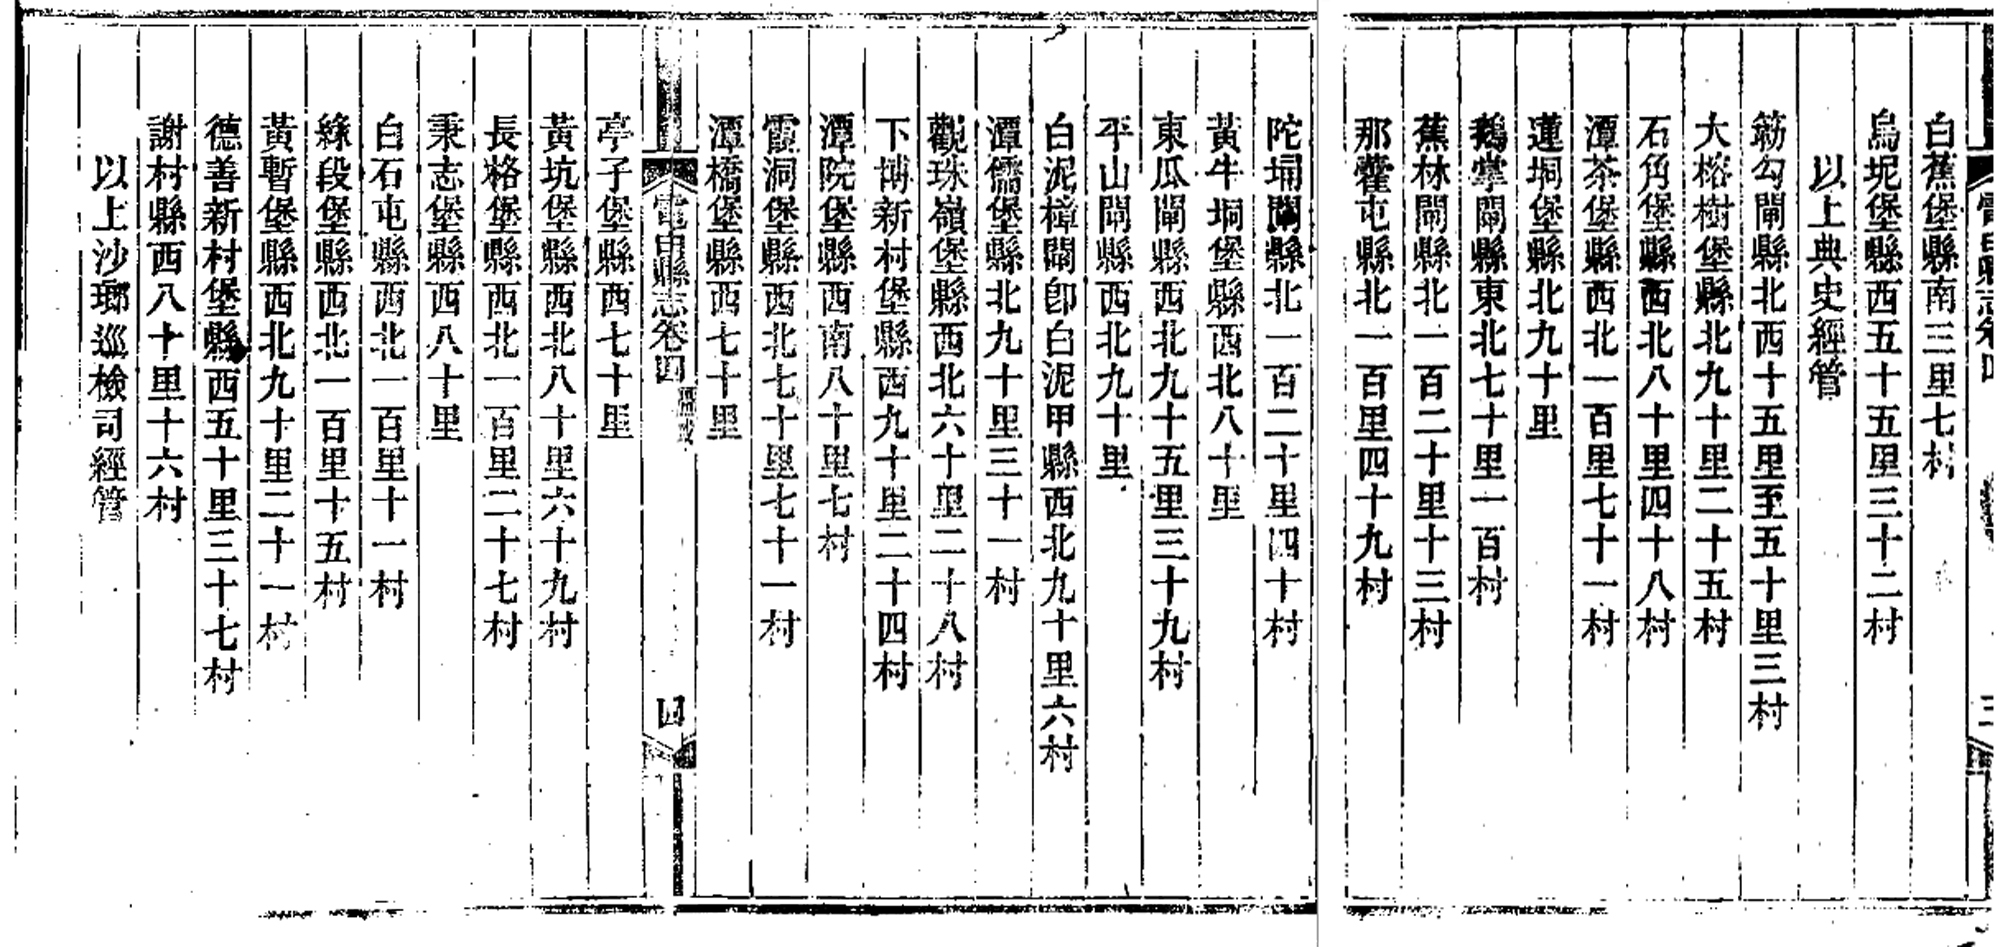 白蕉堡縣南三里七村
烏坭堡縣西五十五里三十二村
以上典史經管
簕勾閘縣北西十五里至五十里三村
大榕樹堡縣北九十里二十五村
石角堡縣西北八十里四十八村
潭茶堡縣西北一百里七十一村
蓮垌堡縣北九十里
鵝掌閘縣東北七十里一百村
蕉林閘縣北一百二十里十三村
那霍屯縣北一百里四十九村
陀垌閘縣北一百二十里四十村
黃牛垌堡縣西北八十里
東瓜閘縣西北九十五里三十九村
平山閘縣西北九十里
白泥樟閘卽白泥甲縣西北九十里六村
潭儒堡縣北九十里三十一村
觀珠嶺堡縣西北六十里二十八村
下博新村堡縣西九十里二十四村
潭院堡縣西南八十里七村
霞洞堡縣西北七十里七十一村
潭橋堡縣西七十里
電白縣志卷四
四
亭子堡縣西七十里
黃坑堡縣西北八十里六十九村
長格堡縣西北一百里二十七村
秉志堡縣西八十里
白石屯縣西北一百里十一村
絲段堡縣西北一百里十五村
黃暫堡縣西北九十里二十一村
德善新村堡縣西五十里三十七村
謝村縣西八十里十六村
以上沙瑯巡檢司經管